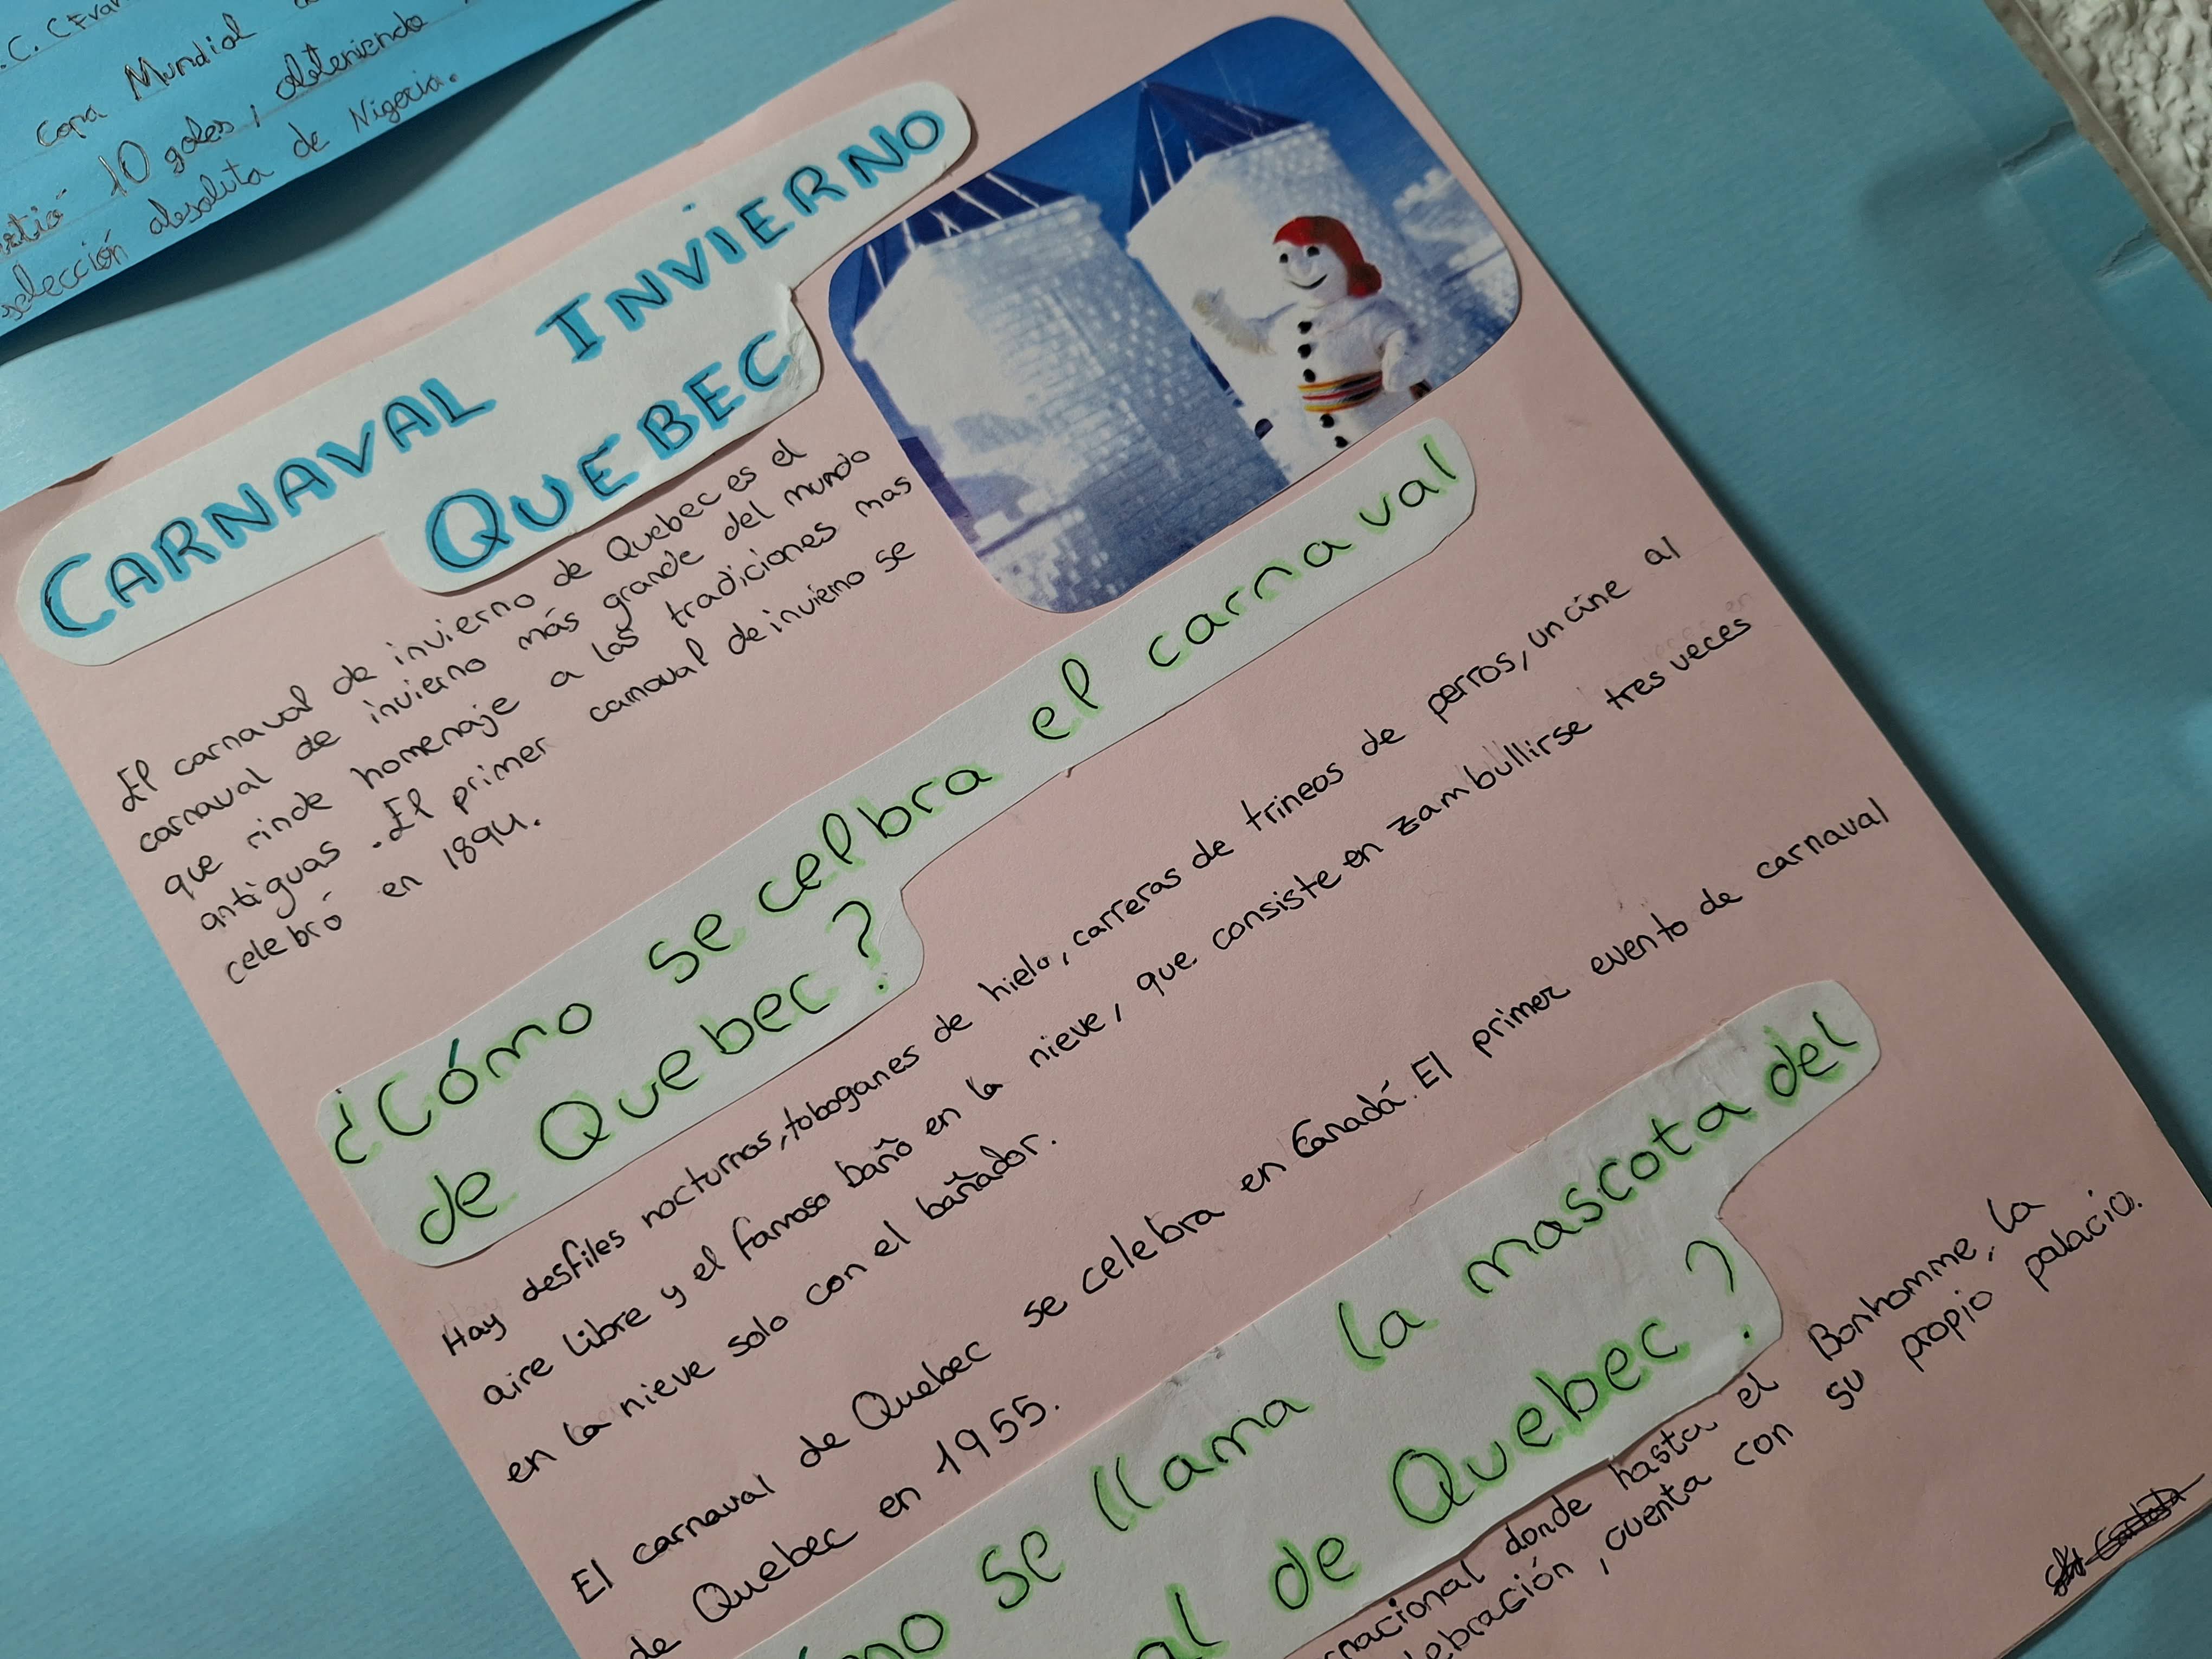 Copa Mundial
10 goles, obteniendo
selección absoluta de Nigeria.
CARNAVAL INVIERNO
QUEBEC
El carnaval de invierno de Quebec es el
carnaval de invierno más grande del mundo
que rinde homenaje a las tradiciones mas
antiguas. El primer carnaval de invierno se
celebró en 1894.
¿Cómo se celbra el carnaval
de Quebec?
Hay desfiles nocturnos, toboganes de hielo, carreras de trineos de perros, un cine al
aire libre y el famoso baño en la nieve, que consiste en zambullirse tres veces
en la nieve solo con el bañador.
El carnaval de Quebec se celebra en Canadá. El primer evento de carnaval
de Quebec en 1955.
se llama la mascota del
de Quebec?
donde hasta el Bonhomme, la
, cuenta con su propio palacio.